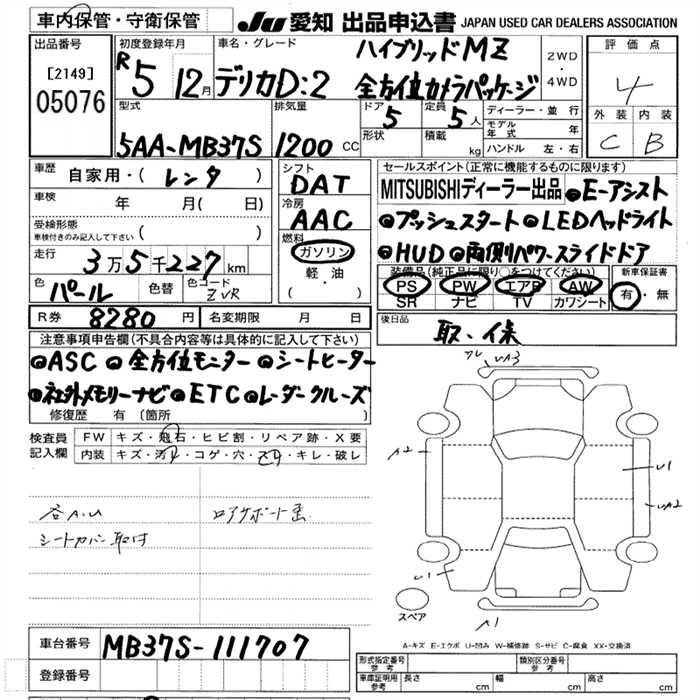 車内保管・守衛保管
JU 愛知 出品申込書 JAPAN USED CAR DEALERS ASSOCIATION
出品番号
[2149]
05076
初度登録年月
R5 12月
車名・グレード
デリカD:2
ハイブリッドMZ
全方位カメラパッケージ
2WD
・
4WD
評価点
4
外装 内装
C B
型式
5AA-MB37S
排気量
1200 CC
ドア
5
定員
5人
形状
積載
kg
ディーラー・並行
モデル年式 年
ハンドル 左・右
車歴 自家用・( レンタ )
車検 年 月( 日)
受検形態
車検付きのみ記入して下さい ( )
走行 3万5千227km
色 パール 色替 色コード ZVR
シフト
DAT
冷房
AAC
燃料
ガソリン
軽・油
( )
セールスポイント(正常に機能するものに限ります)
MITSUBISHIディーラー出品 ●E-アシスト
●プッシュスタート ●LEDヘッドライト
●HUD ●両側パワースライドドア
装備品(純正品に限り○をつけてください)
PS PW エアB AW
SR ナビ TV カワシート
新車保証書
有・無
R券 8280円 名変期限 月 日
後日品
取、保
注意事項申告欄(不具合内容等は具体的に記入して下さい)
●ASC ●全方位モニター ●シートヒーター
●社外メモリーナビ ●ETC ●レーダークルーズ
修復歴 有 (箇所 )
検査員記入欄
FW キズ・飛石・ヒビ割・リペア跡・X要
内装 キズ・汚れ・コゲ・穴・スレ・キレ・破レ
各A.U
シートカバー取付
A2
U1
UA2
U1
A1
スペア
A-キズ E-エクボ U-凹み W-補修跡 S-サビ C-腐食 XX-交換済
車台番号 MB37S-111707
登録番号
型式指定番号 参考 類別区分番号 参考
車庫証明用 参考 長さ cm 幅 cm 高さ cm